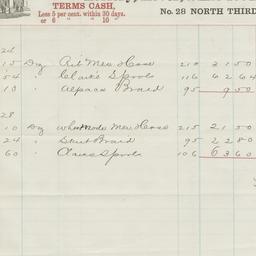 TERMS CASH,
Less 5 per cent. within 30 days.
or 6 " " 10 "
No. 28 NORTH THIRD
24
15 Dz Rib Men Hose 210 31 50
54 " Clarks Spools 116 62 64
10 " Alpaca Braid 95 9 50
28
10 Dz Men Hose 215 21 50
24 " Braid 95 22 80
60 " Clarks Spools 106 63 60